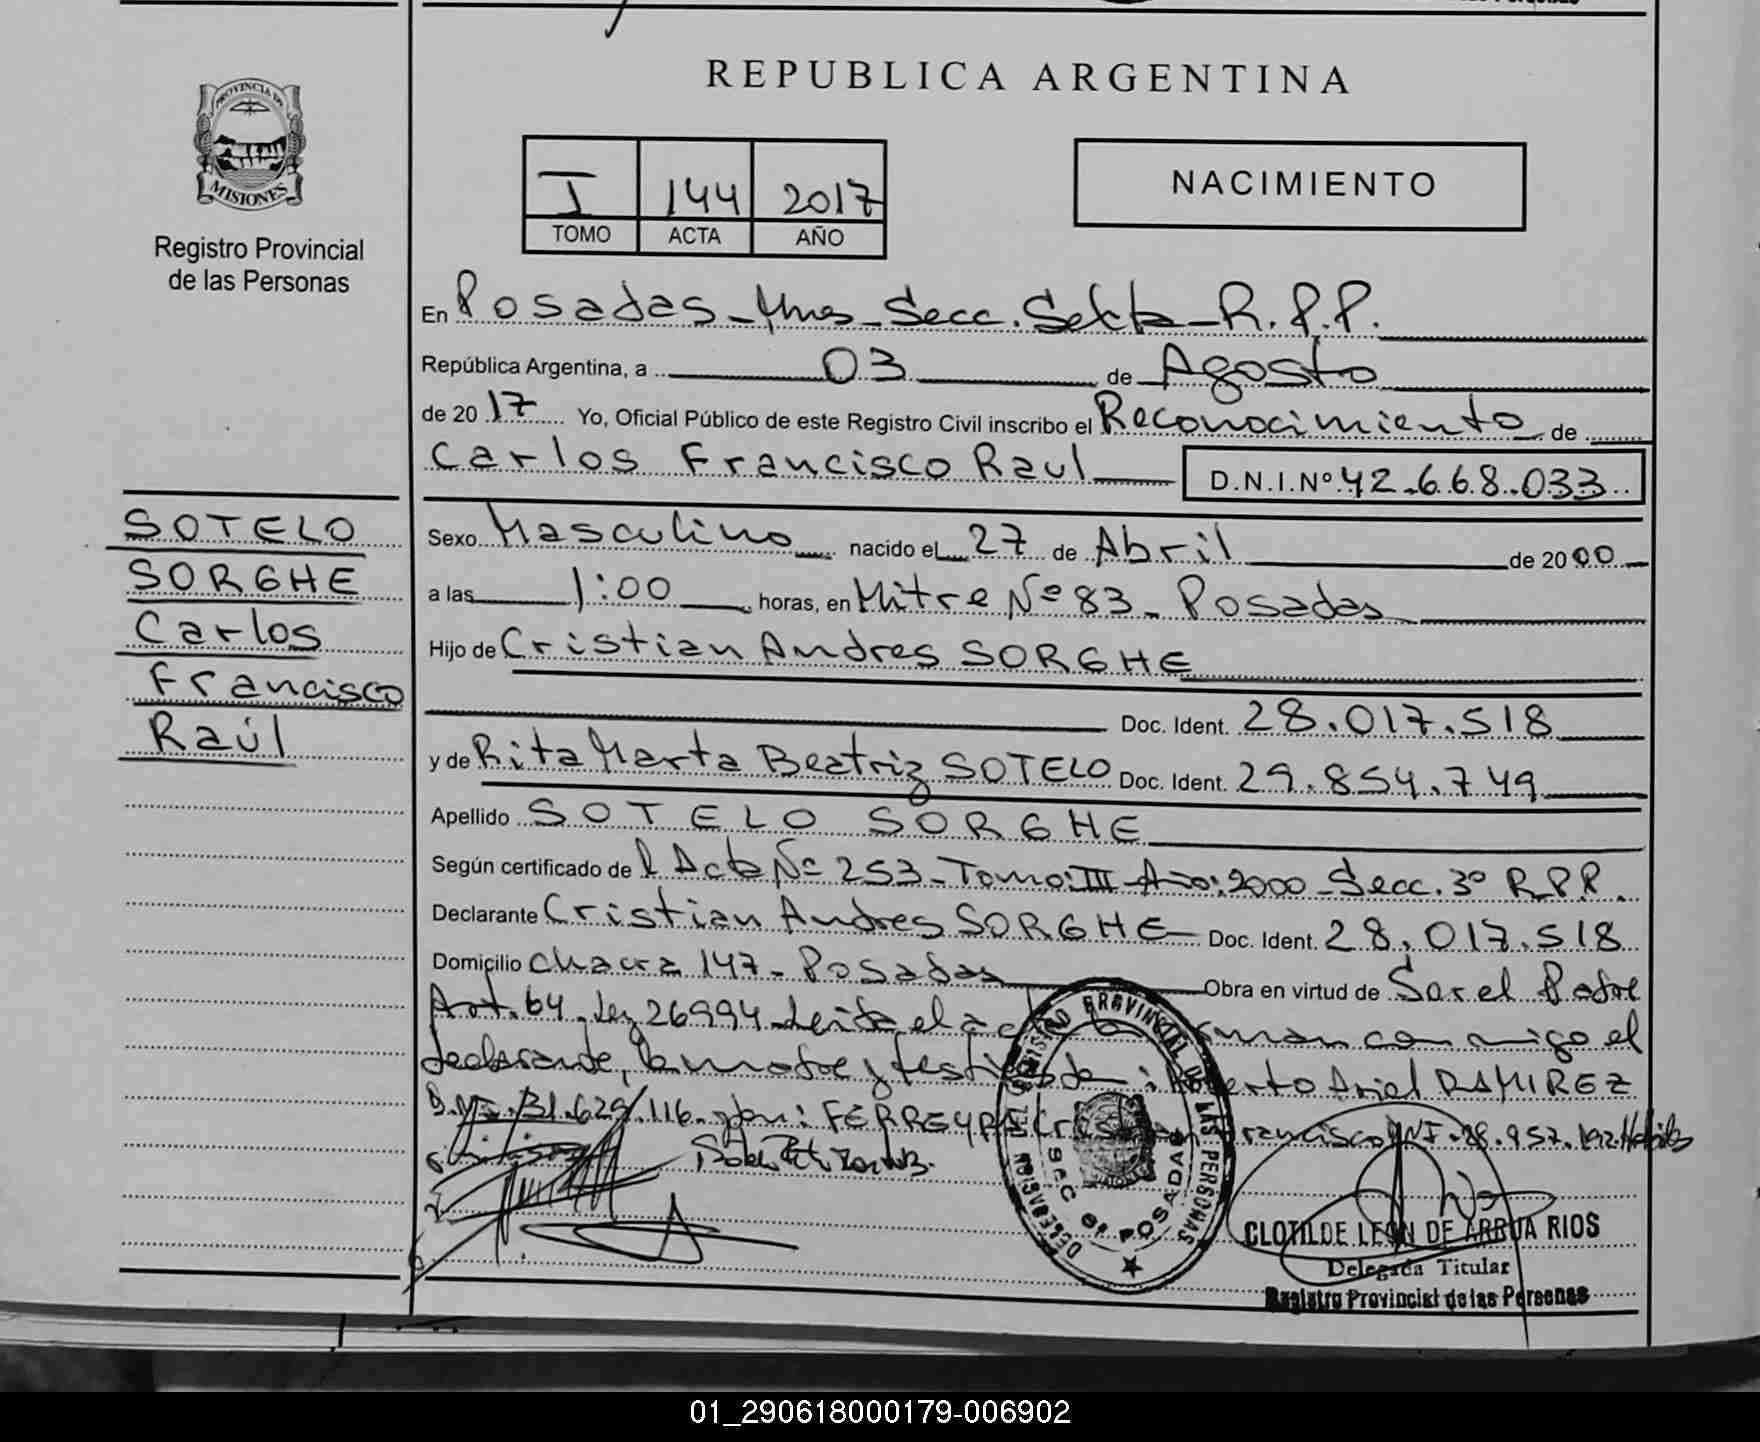 REPUBLICA ARGENTINA
PROVINCIA DE
MISIONES
Registro Provincial
de las Personas
I 144 2017
TOMO ACTA AÑO
NACIMIENTO
En Posadas - Mnes - Secc. Sexta - R.P.P.
República Argentina, a 03 de Agosto
de 2017 Yo, Oficial Público de este Registro Civil inscribo el Reconocimiento de
Carlos Francisco Raul D.N.I.Nº 42.668.033
SOTELO
SORGHE
Carlos
Francisco
Raúl
Sexo Masculino nacido el 27 de Abril de 2000
a las 1:00 horas, en Mitre Nº 83 - Posadas
Hijo de Cristian Andres SORGHE
Doc. Ident. 28.017.518
y de Rita Marta Beatriz SOTELO Doc. Ident. 29.854.749
Apellido SOTELO SORGHE
Según certificado de l Acta Nº 253 - Tomo: III - Año: 2000 - Secc. 3º R.P.P.
Declarante Cristian Andres SORGHE Doc. Ident. 28.017.518
Domicilio chacra 147 - Posadas Obra en virtud de Ser el Padre
Art. 64 - Ley 26994 - Leida el ac firman con migo el
declarante, la madre y testigos Ariel RAMIREZ
D.N.I. 31.629.116 FERREYRA Francisco DNI 28.957.192
REGISTRO PROVINCIAL DE LAS PERSONAS
DELEGACION
SEC 6ª POSADAS
CLOTILDE LEON DE ARRUA RIOS
Delegada Titular
Registro Provincial de las Personas
01_290618000179-006902